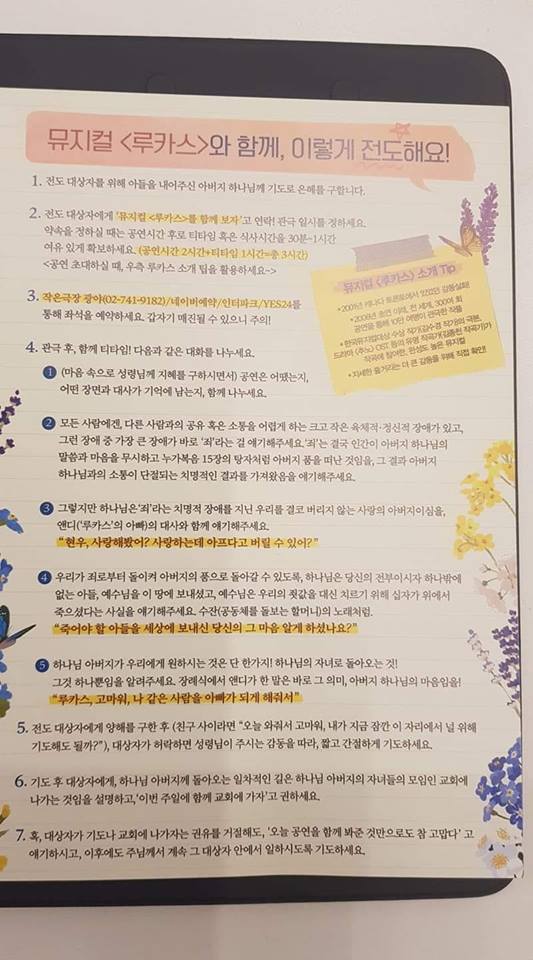 뮤지컬 <루카스>와 함께, 이렇게 전도해요!
1. 전도 대상자를 위해 아들을 내어주신 아버지 하나님께 기도로 은혜를 구합니다.
2. 전도 대상자에게 '뮤지컬 <루카스>를 함께 보자'고 연락! 관극 일시를 정하세요.
약속을 정하실 때는 공연시간 후로 티타임 혹은 식사시간을 30분~1시간
여유 있게 확보하세요. (공연시간 2시간+티타임 1시간=총 3시간)
<공연 초대하실 때, 우측 루카스 소개 팁을 활용하세요~>
뮤지컬 <루카스> 소개 Tip
*2001년 캐나다 토론토에서 있었던 감동실화!
*2006년 초연 이래, 전 세계, 300여 회
공연을 통해 10만 여명이 관극한 작품
*한국뮤지컬대상 수상 작가(김수경 작가)의 극본,
드라마 <추노> OST 등의 유명 작곡가(김종천 작곡가)가
작곡에 참여한, 완성도 높은 뮤지컬
*자세한 줄거리는 더 큰 감동을 위해 직접 확인!
3. 작은극장 광야(02-741-9182)/네이버예약/인터파크/YES24를
통해 좌석을 예약하세요. 갑자기 매진될 수 있으니 주의!
4. 관극 후, 함께 티타임! 다음과 같은 대화를 나누세요.
1 (마음 속으로 성령님께 지혜를 구하시면서) 공연은 어땠는지,
어떤 장면과 대사가 기억에 남는지, 함께 나누세요.
2 모든 사람에겐, 다른 사람과의 공유 혹은 소통을 어렵게 하는 크고 작은 육체적·정신적 장애가 있고,
그런 장애 중 가장 큰 장애가 바로 '죄'라는 걸 얘기해주세요. '죄'는 결국 인간이 아버지 하나님의
말씀과 마음을 무시하고 누가복음 15장의 탕자처럼 아버지 품을 떠난 것임을, 그 결과 아버지
하나님과의 소통이 단절되는 치명적인 결과를 가져왔음을 얘기해주세요.
3 그렇지만 하나님은 '죄'라는 치명적 장애를 지닌 우리를 결코 버리지 않는 사랑의 아버지이심을,
앤디('루카스'의 아빠)의 대사와 함께 얘기해주세요.
"현우, 사랑해봤어? 사랑하는데 아프다고 버릴 수 있어?"
4 우리가 죄로부터 돌이켜 아버지의 품으로 돌아갈 수 있도록, 하나님은 당신의 전부이시자 하나밖에
없는 아들, 예수님을 이 땅에 보내셨고, 예수님은 우리의 죗값을 대신 치르기 위해 십자가 위에서
죽으셨다는 사실을 얘기해주세요. 수잔(공동체를 돌보는 할머니)의 노래처럼.
"죽어야 할 아들을 세상에 보내신 당신의 그 마음 알게 하셨나요?"
5 하나님 아버지가 우리에게 원하시는 것은 단 한가지! 하나님의 자녀로 돌아오는 것!
그것 하나뿐임을 알려주세요. 장례식에서 앤디가 한 말은 바로 그 의미, 아버지 하나님의 마음임을!
"루카스, 고마워, 나 같은 사람을 아빠가 되게 해줘서"
5. 전도 대상자에게 양해를 구한 후 (친구 사이라면 "오늘 와줘서 고마워, 내가 지금 잠깐 이 자리에서 널 위해
기도해도 될까?"), 대상자가 허락하면 성령님이 주시는 감동을 따라, 짧고 간절하게 기도하세요.
6. 기도 후 대상자에게, 하나님 아버지께 돌아오는 일차적인 길은 하나님 아버지의 자녀들의 모임인 교회에
나가는 것임을 설명하고, '이번 주일에 함께 교회에 가자'고 권하세요.
7. 혹, 대상자가 기도나 교회에 나가자는 권유를 거절해도, '오늘 공연을 함께 봐준 것만으로도 참 고맙다' 고
얘기하시고, 이후에도 주님께서 계속 그 대상자 안에서 일하시도록 기도하세요.